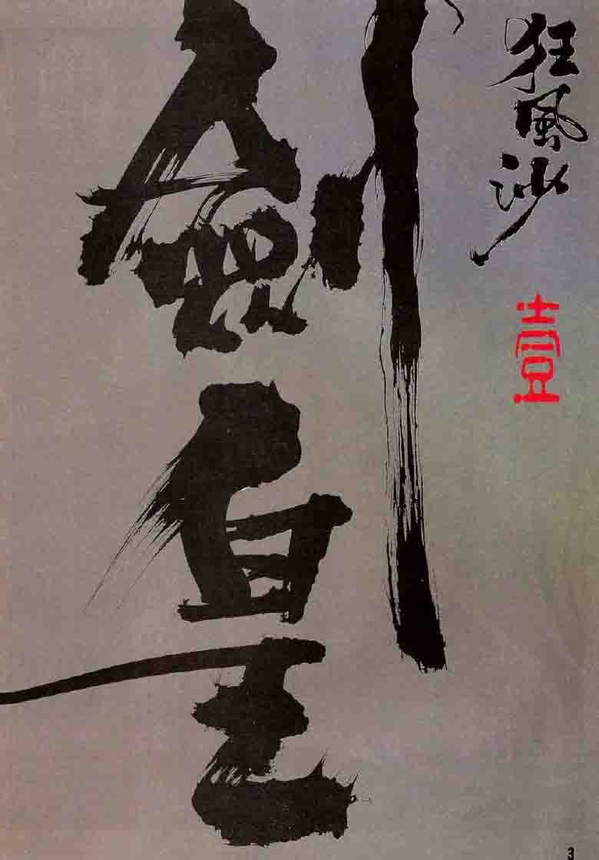 狂風沙
壹
劍皇
3